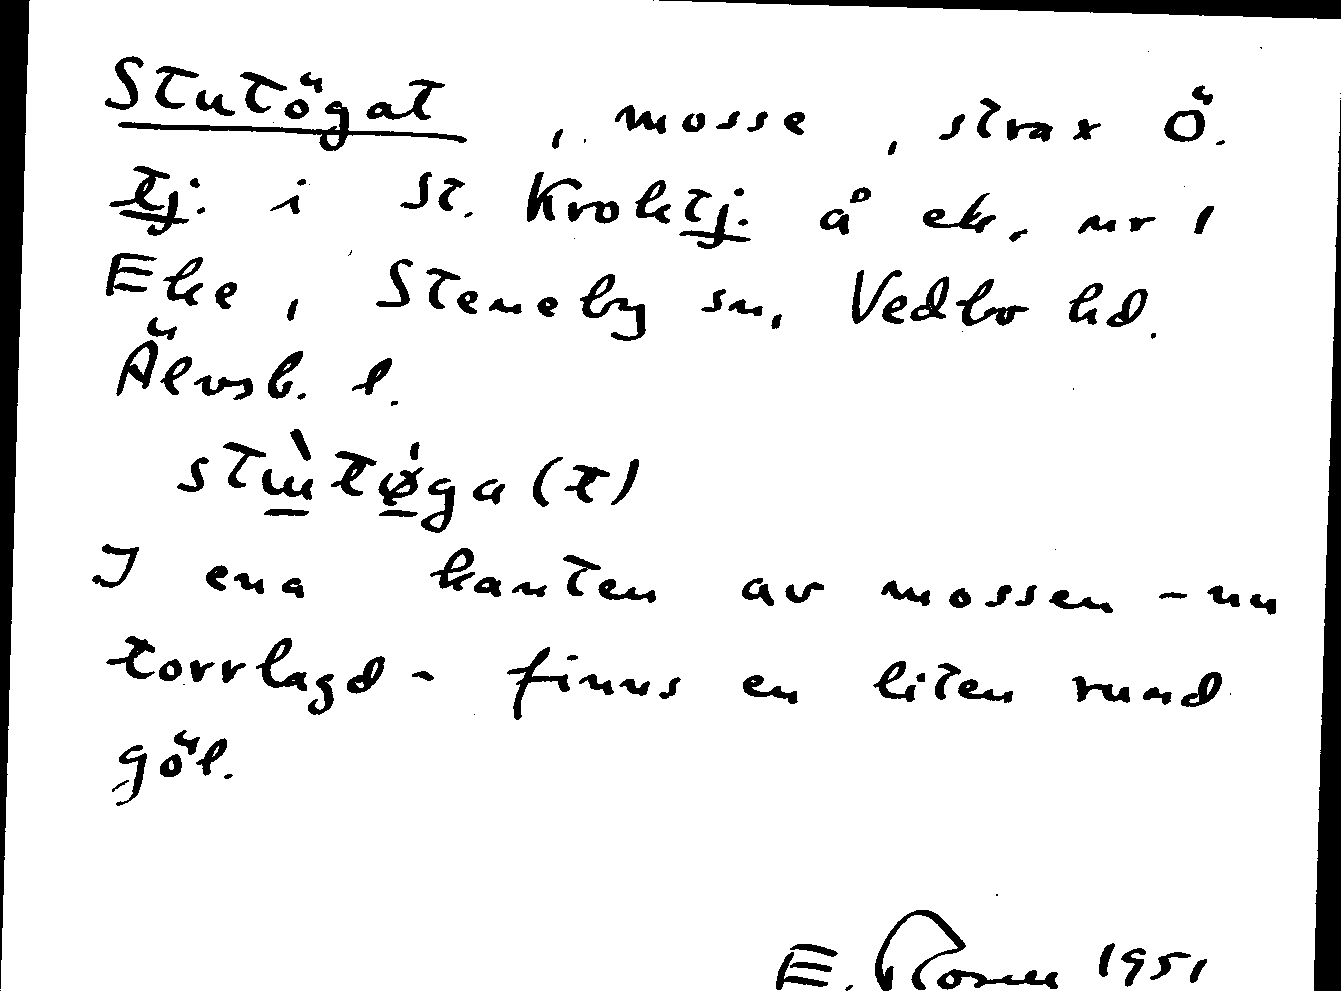 Stutögat, mosse, strax Ö.
tj. i St. Kroktj. å ek. nr 1
Eke, Steneby sn, Vedbo hd.
Älvsb. l.
I ena kanten av mossen - nu
torrlagd - finns en liten rund
göl.
E. Rosell 1951